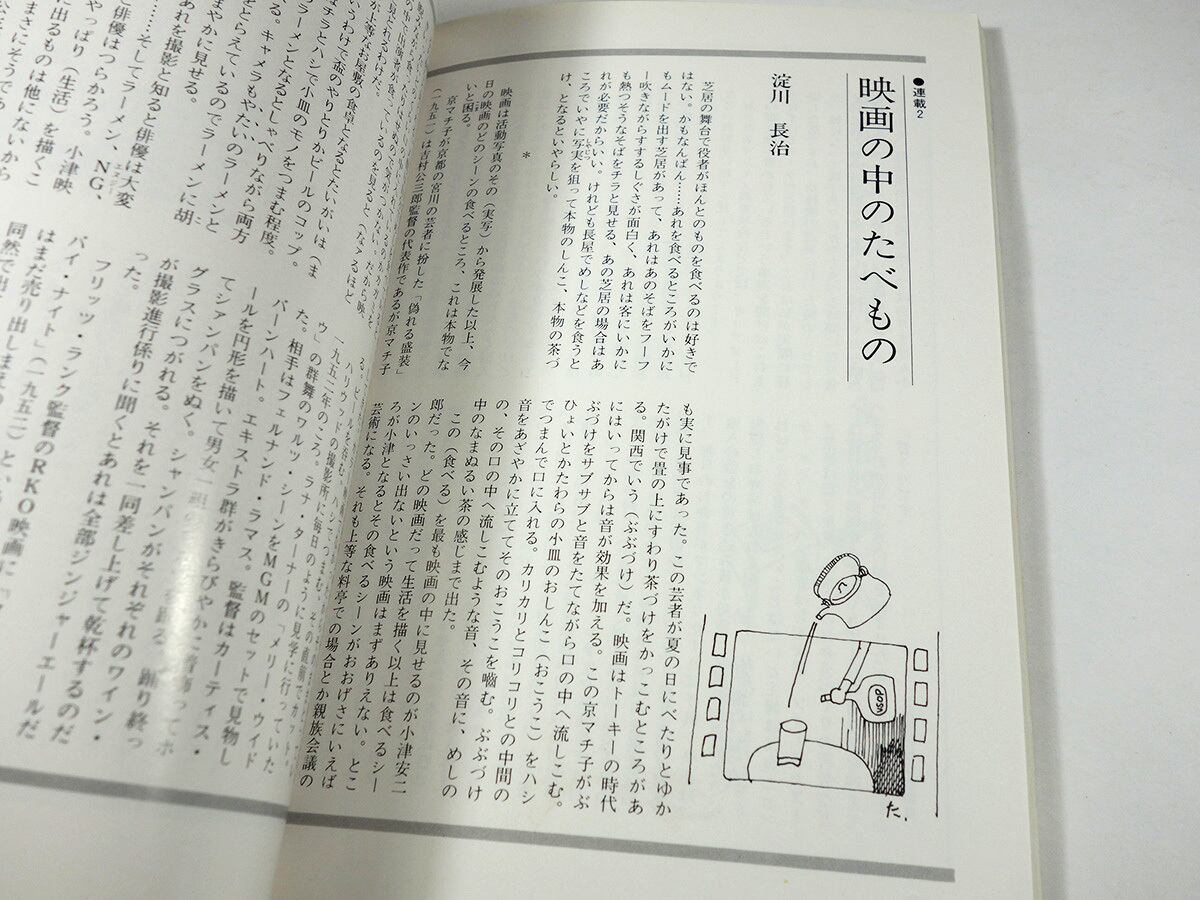 ●連載2
映画の中のたべもの
淀川 長治
芝居の舞台で役者がほんとのものを食べるのは好きで
はない。かもなんばん……あれを食べるところがいかに
もムードを出す芝居があって、あれはあのそばをフーフ
ー吹きながらすするしぐさが面白く、あれは客にいかに
も熱つそうなそばをチラと見せる、あの芝居の場合はあ
れが必要だからいい。けれども長屋でめしなどを食うと
ころでいやに写実を狙って本物のしんこ、本物の茶づ
け、となるといやらしい。
*
映画は活動写真のその（実写）から発展した以上、今
日の映画のどのシーンの食べるところ、これは本物でな
いと困る。
京マチ子が京都の宮川の芸者に扮した「偽れる盛装」
（一九五一）は吉村公三郎監督の代表作であるが京マチ子
も実に見事であった。この芸者が夏の日にべたりとゆか
たがけで畳の上にすわり茶づけをかっこむところがあ
る。関西でいう（ぶぶづけ）だ。映画はトーキーの時代
にはいってからは音が効果を加える。この京マチ子がぶ
ぶづけをサブサブと音をたてながら口の中へ流しこむ。
ひょいとかたわらの小皿のおしんこ（おこうこ）をハシ
でつまんで口に入れる。カリカリとコリコリとの中間の
音をあざやかに立ててそのおこうこを嚙む。ぶぶづけ
の、その口の中へ流しこむような音、その音に、めしの
中のなまぬるい茶の感じまで出た。
この（食べる）を最も映画の中に見せるのが小津安二
郎だった。どの映画だって生活を描く以上は食べるシー
ンのいっさい出ないという映画はまずありえない。とこ
ろが小津となるとその食べるシーンがおおげさにいえば
芸術になる。それも上等な料亭での場合とか親族会議の
DOSO
た.
見とれるわけだ。
が上等なお屋敷の食卓となるとたいがいは（ま
いうわけで盃のやりとりかビールのコップ。
チラとハシで小皿のモノをつまむ程度。
ラーメンとなるとしゃべりながら両方
をとらえているのでラーメンに胡
る。キャメラもやたいのラーメンと
まやかに見せる。
あれを撮影と知ると俳優は大変
……そしてラーメン、NG、
と俳優はつらかろう。小津映
やっぱり（生活）を描くこ
に出るものは他にないから
まさにそうであ
ウ」の群舞のワルツ・シーンをMGMのセットで見物し
一九五二年のころ。ラナ・ターナーの「メリー・ウイド
た。相手はフェルナンド・ラマス。監督はカーティス・
バーンハート。エキストラ群がきらびやかに
ールを円形を描いて男女
てシャンパンをぬく。シャンパンがそれぞれのワイン・
グラスにつがれる。それを一同差し上げて乾杯するのだ
が撮影進行係りに聞くとあれは全部ジンジャーエールだ
った。
フリッツ・ラング監督のRKO映画に「
バイ・ナイト」（一九五二）とい
はまだ売り出しまえの
同然で出